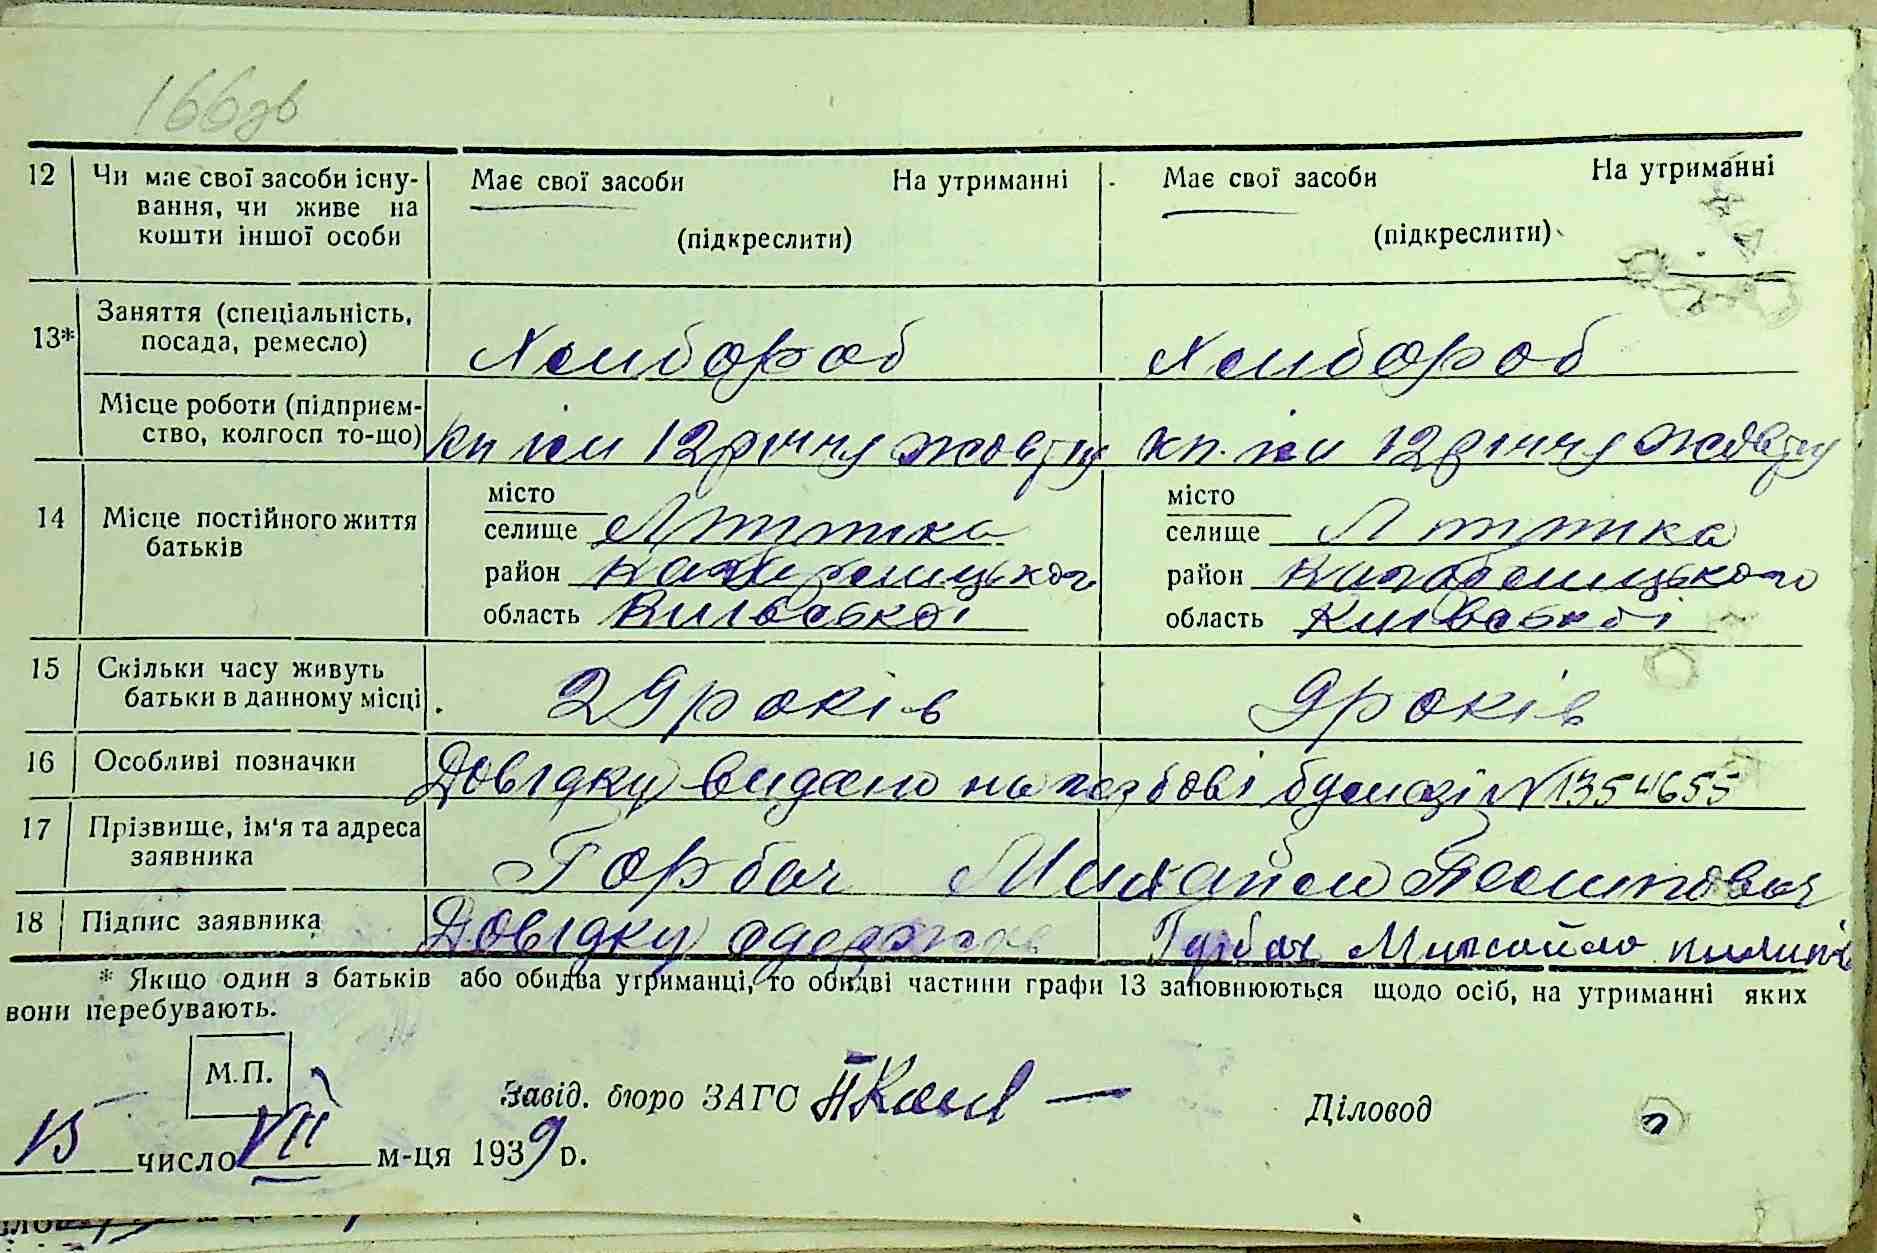 166зв
12 Чи має свої засоби існу- Має свої засоби На утриманні Має свої засоби На утриманні
вання, чи живе на
кошти іншої особи (підкреслити) (підкреслити)
13* Заняття (спеціальність,
посада, ремесло) Хлибороб Хлибороб
Місце роботи (підприєм-
ство, колгосп то-що) кп ім 12 річчу жовтну кп. ім 12 річчу жовтну
місто місто
14 Місце постійного життя селище селище
батьків район район
область Київської область Київської
15 Скільки часу живуть
батьки в данному місці 29 років 9 років
16 Особливі позначки Довідку видано на бумазі № 1354655
17 Прізвище, ім'я та адреса
заявника Горбач Михайло
18 Підпис заявника Довідку одержав Горбач Михайло
* Якщо один з батьків або обидва утриманці, то обидві частини графи 13 заповнюються щодо осіб, на утриманні яких
вони перебувають.
М.П.
Завід. бюро ЗАГС Діловод
15 число VII м-ця 1939 р.